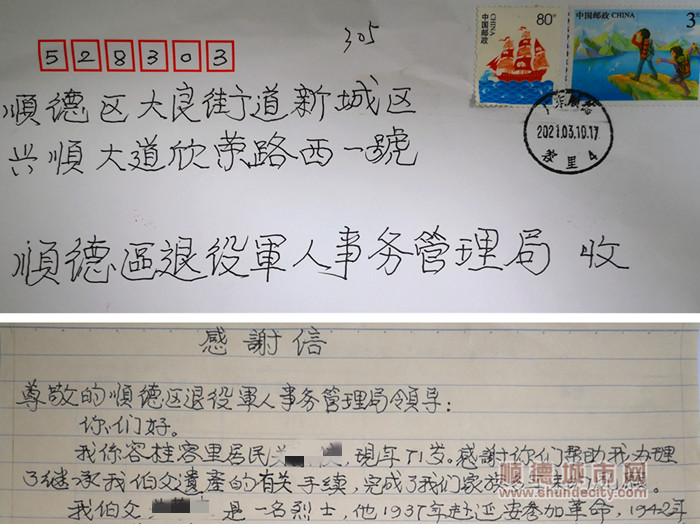 305
528303
中国邮政 CHINA
80分
中国邮政 CHINA
3
2021.03.10.17
順德区大良街道新城区
兴順大道欣荣路西一號
順德區退役軍人事务管理局 收
感謝信
尊敬的順德区退役軍人事务管理局领导：
你们好。
我係容桂容里居民 ，現年71岁。感謝你们帮助我办理
了继承我伯父遺產的有关手续，完成了我们家族
我伯父 是一名烈士，他1937年赴延安参加革命，1942年
順德城市网
www.shundecity.com